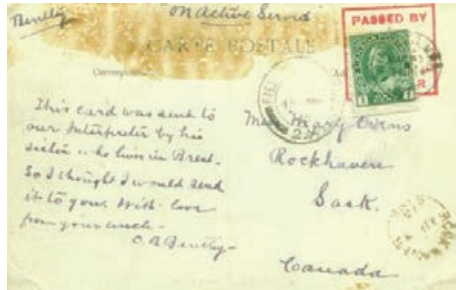 Bently
"On Active Service"
PASSED BY
CARTE POSTALE
This card was sent to
our Interpreter by his
sister who lives in Brest.
So I thought I would send
it to you. With love
from your uncle -
Miss Mary
Rockhaven
Sask.
Canada